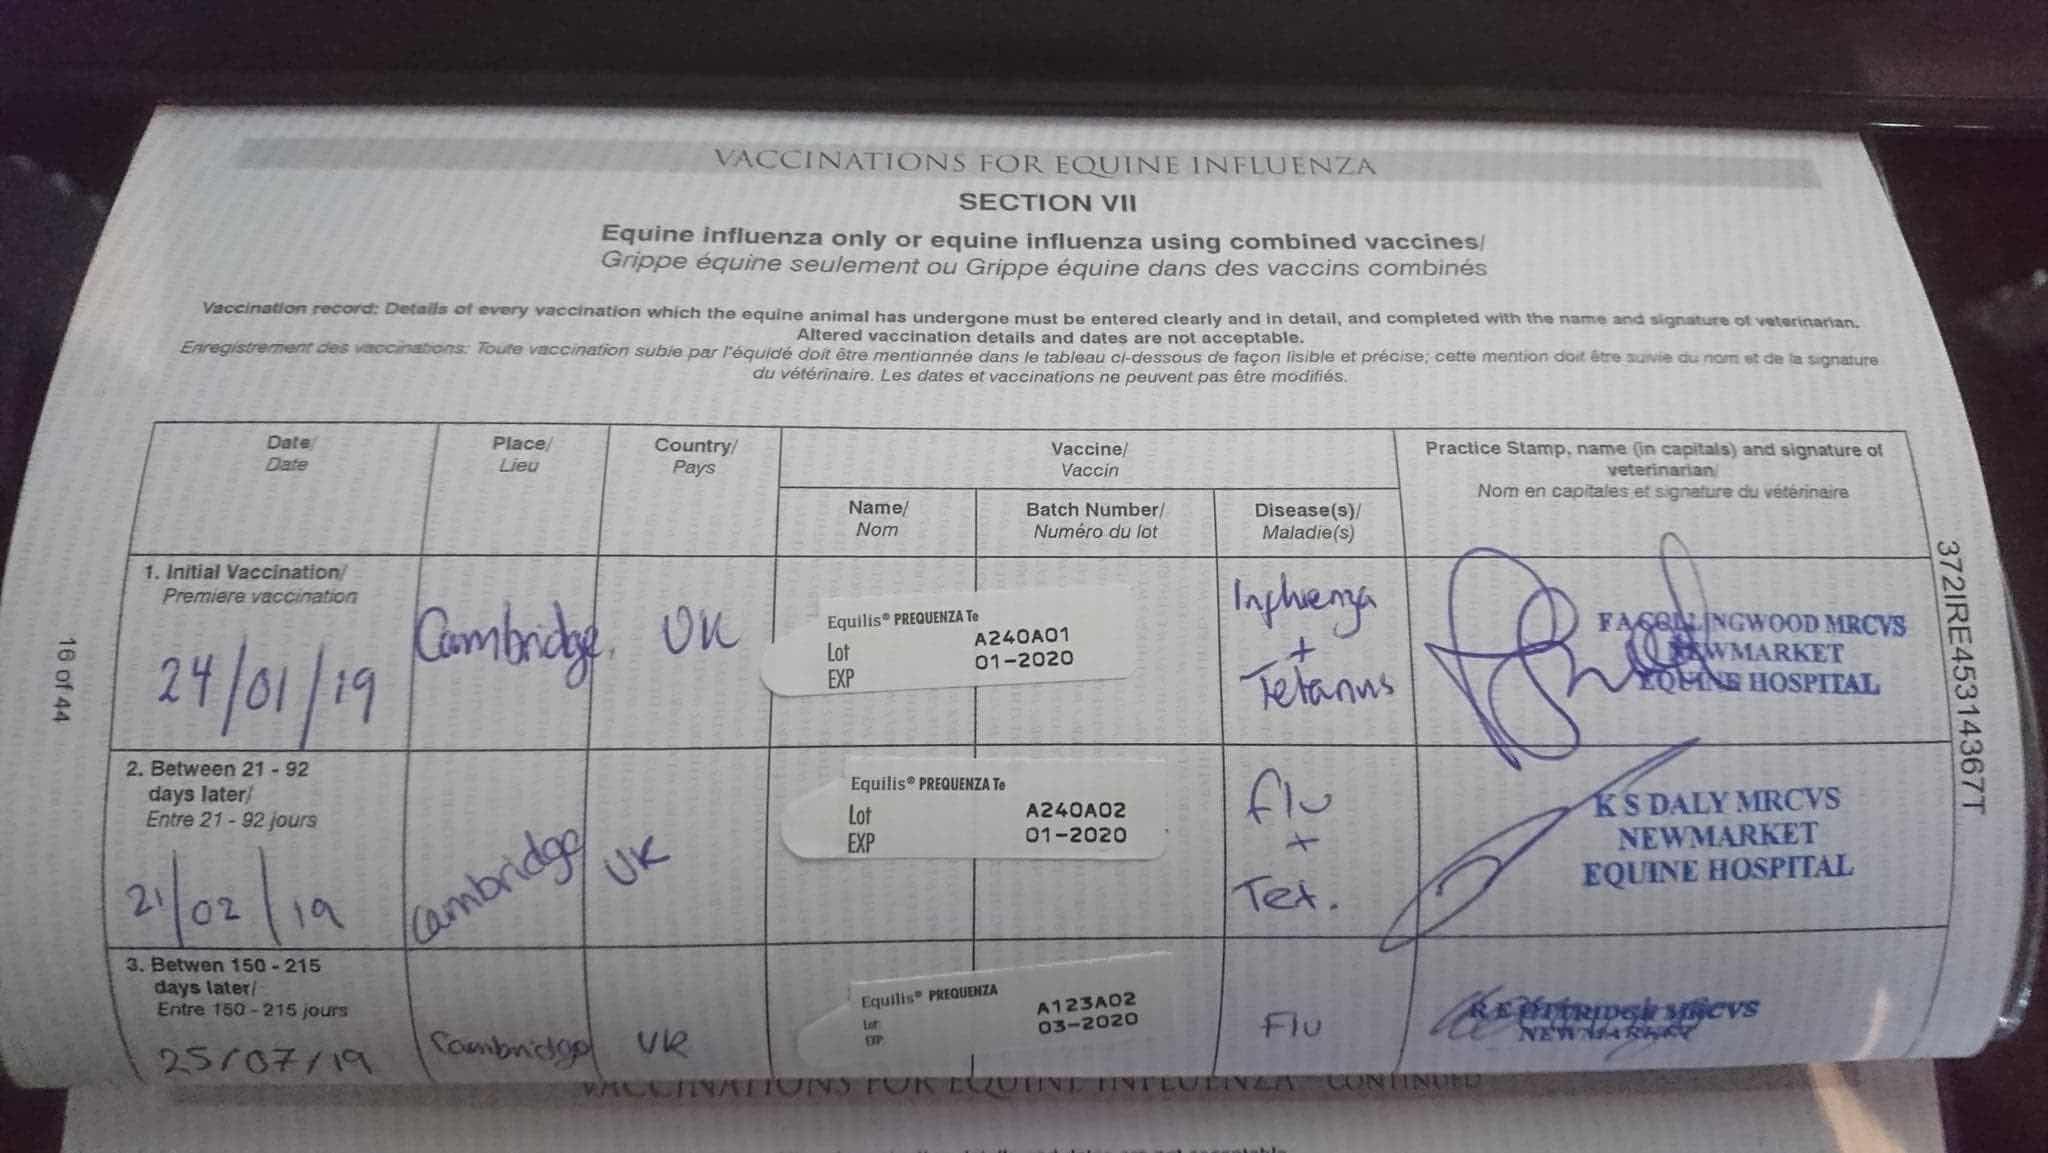 VACCINATIONS FOR EQUINE INFLUENZA
SECTION VII
Equine influenza only or equine influenza using combined vaccines/
Grippe équine seulement ou Grippe équine dans des vaccins combinés
Vaccination record: Details of every vaccination which the equine animal has undergone must be entered clearly and in detail, and completed with the name and signature of veterinarian.
Altered vaccination details and dates are not acceptable.
Enregistrement des vaccinations: Toute vaccination subie par l'équidé doit être mentionnée dans le tableau ci-dessous de façon lisible et précise; cette mention doit être suivie du nom et de la signature
du vétérinaire. Les dates et vaccinations ne peuvent pas être modifiés.
Date/
Date
Place/
Lieu
Country/
Pays
Vaccine/
Vaccin
Practice Stamp, name (in capitals) and signature of
veterinarian/
Nom en capitales et signature du vétérinaire
Name/
Nom
Batch Number/
Numéro du lot
Disease(s)/
Maladie(s)
1. Initial Vaccination/
Premiere vaccination
24/01/19
Cambridge,
UK
Equilis® PREQUENZA Te
Lot A240A01
EXP 01-2020
Influenza
+
Tetanus
F A COLLINGWOOD MRCVS
NEWMARKET
EQUINE HOSPITAL
2. Between 21 - 92
days later/
Entre 21 - 92 jours
21/02/19
Cambridge
UK
Equilis® PREQUENZA Te
Lot A240A02
EXP 01-2020
Flu
+
Tet.
K S DALY MRCVS
NEWMARKET
EQUINE HOSPITAL
3. Betwen 150 - 215
days later/
Entre 150 - 215 jours
25/07/19
Cambridge
UK
Equilis® PREQUENZA
Lot A123A02
EXP 03-2020
Flu
MRCVS
NEWMARKET
16 of 44
372IRE45314367T
VACCINATIONS FOR EQUINE INFLUENZA - CONTINUED